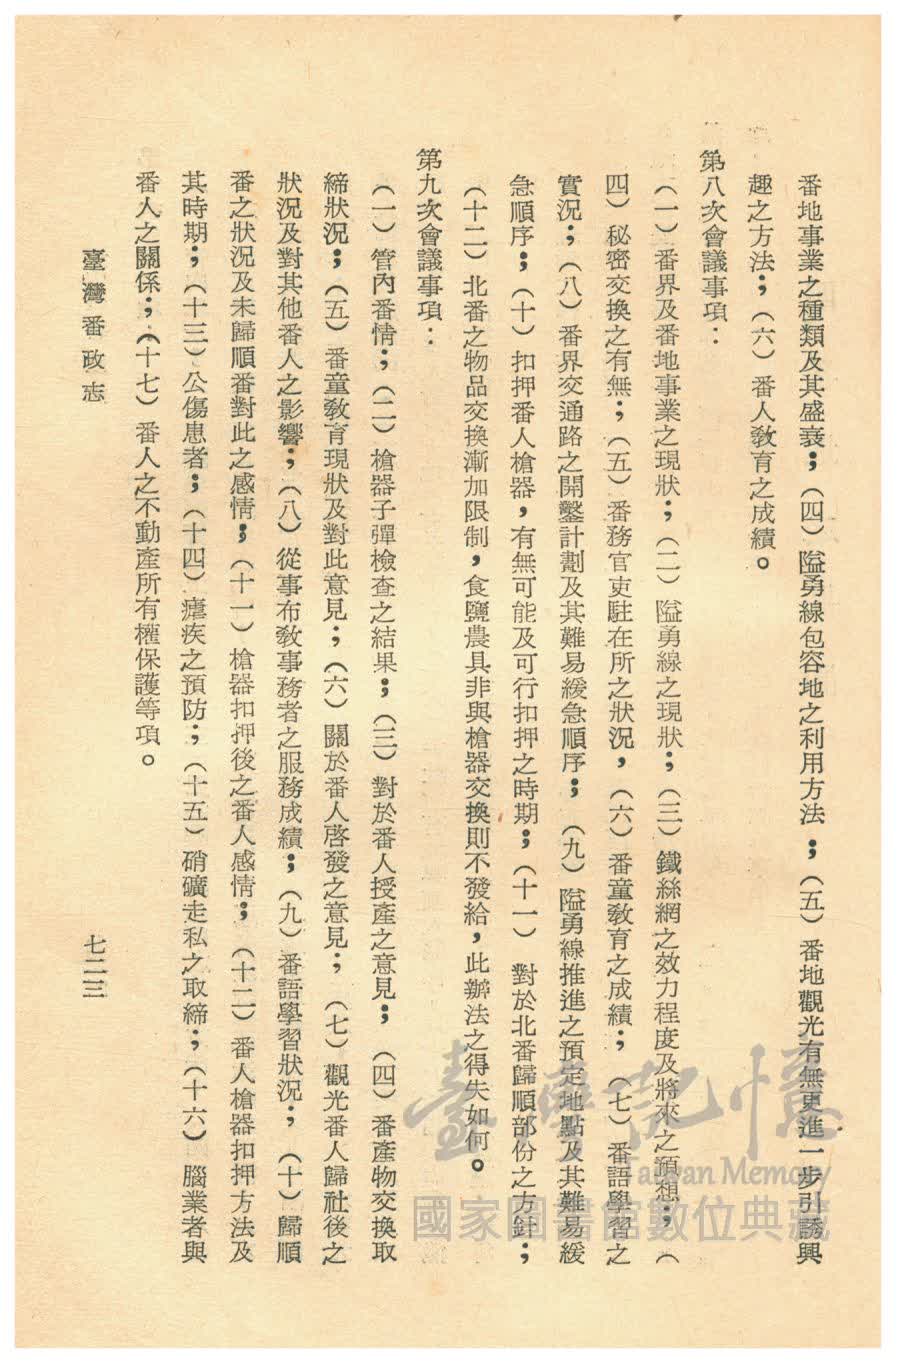 番地事業之種類及其盛衰；（四）隘勇線包容地之利用方法；（五）番地觀光有無更進一步引誘興
趣之方法；（六）番人教育之成績。
第八次會議事項：
（一）番界及番地事業之現狀；（二）隘勇線之現狀；（三）鐵絲網之效力程度及將來之預想；（
四）秘密交換之有無；（五）番務官吏駐在所之狀況，（六）番童教育之成績；（七）番語學習之
實況；（八）番界交通路之開鑿計劃及其難易緩急順序；（九）隘勇線推進之預定地點及其難易緩
急順序；（十）扣押番人槍器，有無可能及可行扣押之時期；（十一）對於北番歸順部份之方針；
（十二）北番之物品交換漸加限制，食鹽農具非與槍器交換則不發給，此辦法之得失如何。
第九次會議事項：
（一）管內番情；（二）槍器子彈檢查之結果；（三）對於番人授產之意見；（四）番產物交換取
締狀況；（五）番童教育現狀及對此意見；（六）關於番人啓發之意見；（七）觀光番人歸社後之
狀況及對其他番人之影響；（八）從事布教事務者之服務成績；（九）番語學習狀況；（十）歸順
番之狀況及未歸順番對此之感情；（十一）槍器扣押後之番人感情；（十二）番人槍器扣押方法及
其時期；（十三）公傷患者；（十四）瘧疾之預防；（十五）硝磺走私之取締；（十六）腦業者與
番人之關係；（十七）番人之不動產所有權保護等項。
臺灣番政志
七二三
臺灣記憶
Taiwan Memory
國家圖書館數位典藏